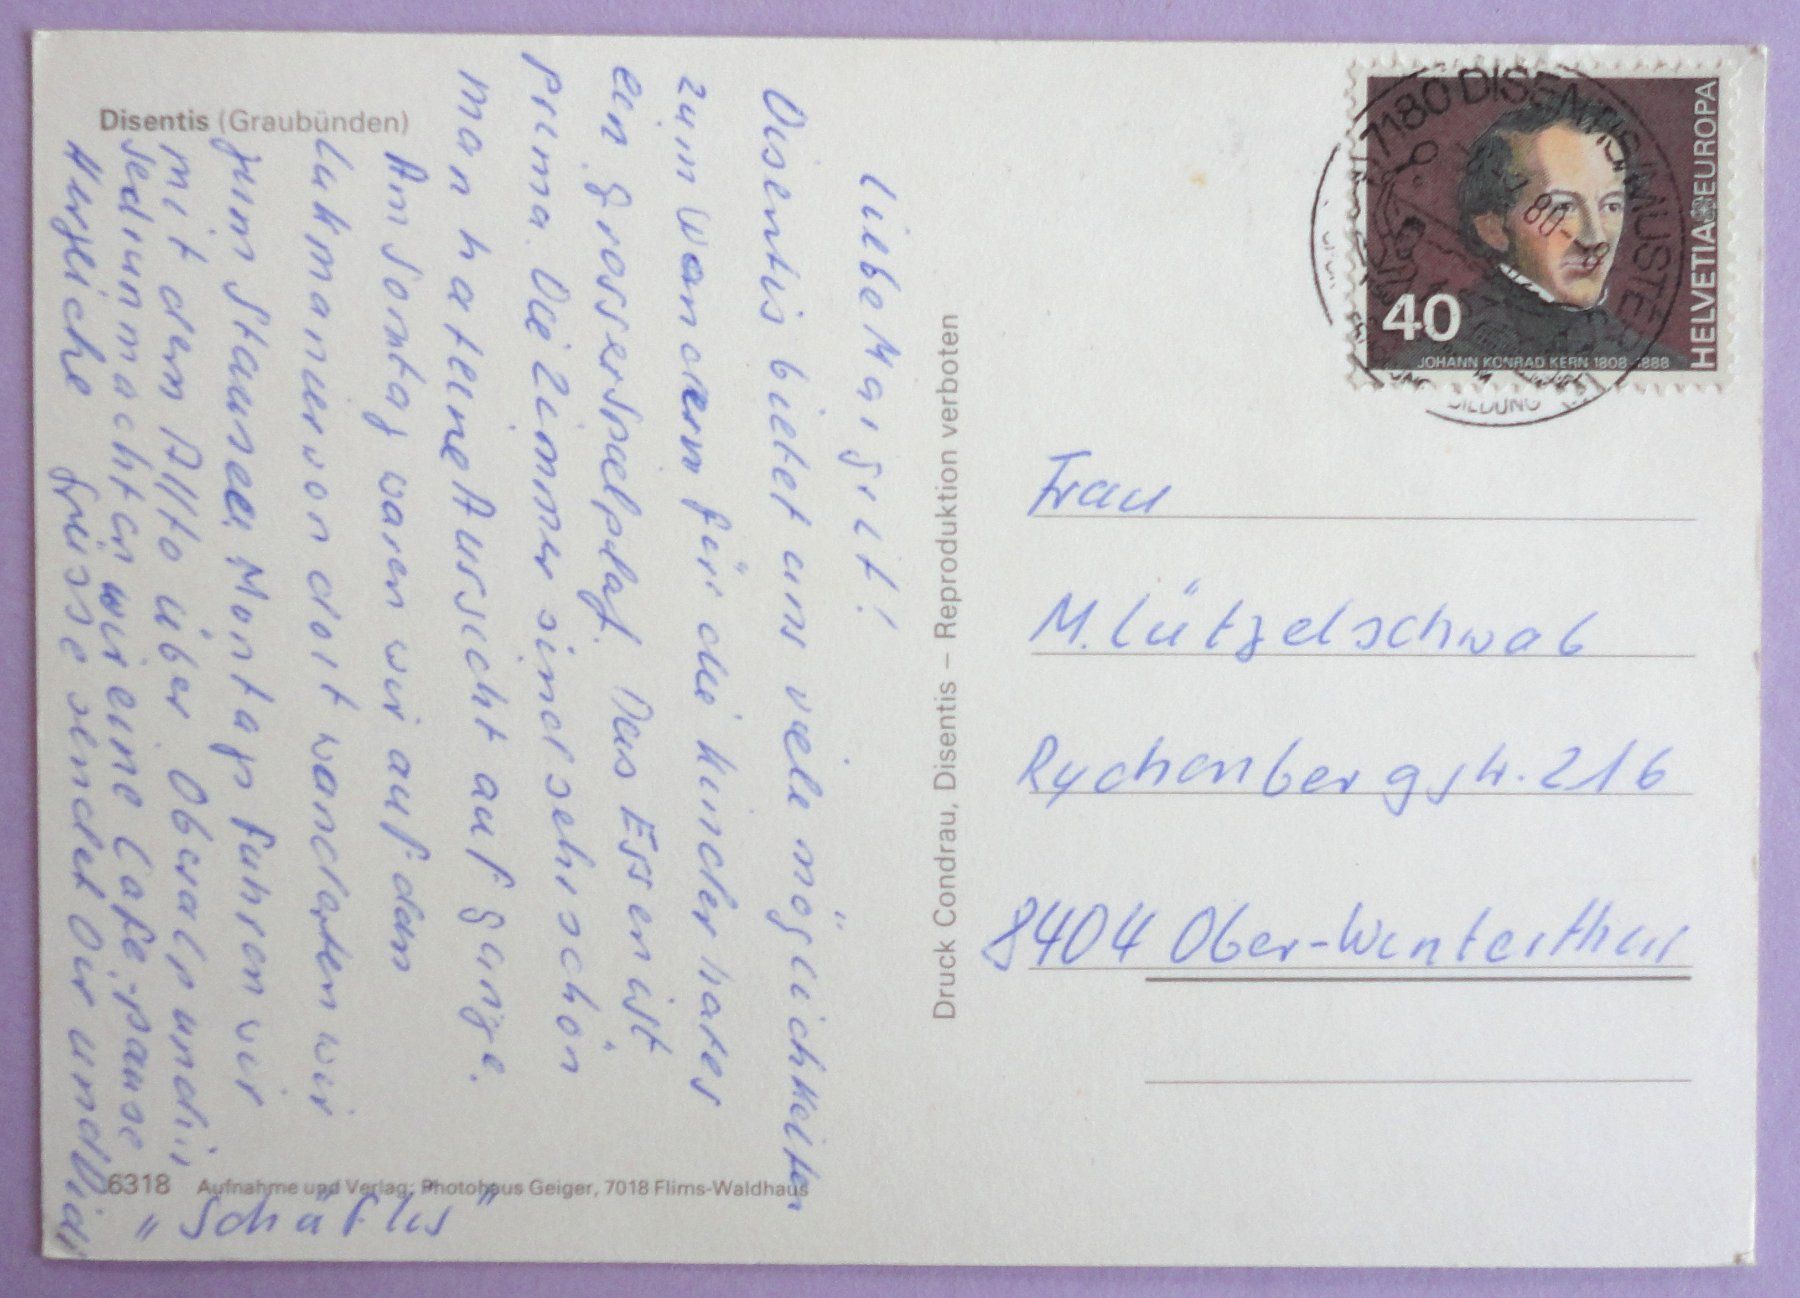 Disentis (Graubünden)
Liebe Margrit!
Disentis bietet uns viele möglichkeiten
zum Wandern für die Kinder hat es
ein grosser Spielplatz. Das Essen ist
prima. Die Zimmer sind sehr schön
man hat eine Aussicht auf ganze.
Am Sontag waren wir auf dem
Lukmanier von dort wanderten wir
zum Stausee. Montag fuhren wir
mit dem Auto über Oberalp und in
Sedrun machten wir eine Cafe-pause
Herzliche Grüsse sendet Dir und
"Schäflis"
6318 Aufnahme und Verlag: Photohaus Geiger, 7018 Flims-Waldhaus
Druck Condrau, Disentis – Reproduktion verboten
7180 DISENTIS/MUSTER
80-18
BILDUNG
HELVETIA EUROPA
40
JOHANN KONRAD KERN 1808-1888
Frau
M. Lützelschwab
Rychenbergstr. 216
8404 Ober-Winterthur